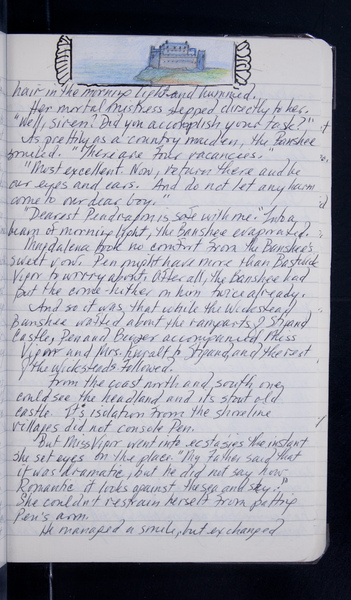 hair in the morning light and hummed.
Her mortal mistress stepped directly to her.
"Well, Siren? Did you accomplish your task?"
As prettily as a country maiden, the Banshee
smiled. "There are four vacancies."
"Most excellent. Now, return there and be
our eyes and ears. And do not let any harm
come to our dear boy."
"Dearest Pendrafon is safe with me." Into a
beam of morning light, the Banshee evaporated.
Magdalena took no comfort from the Banshee's
sweet vow. Pen might have more than
Vipor to worry about. After all, the Banshee had
put the come-hither on him twice already.
And so it was, that while the Wickstead
Banshee wafted about the ramparts of
Castle, Pen and Berger accompanied Miss
Vipor and Mrs. to and the rest
of the Wicksteads followed.
From the coast north and south, one
could see the headland and its stout old
castle. It's isolation from the shoreline
villages did not console Pen.
But Miss Vipor went into ecstasies the instant
she set eyes on the place. "My Father said that
it was dramatic, but he did not say how
Romantic it looks against the sea and sky."
She couldn't restrain herself from petting
Pen's arm.
He managed a smile, but exchanged